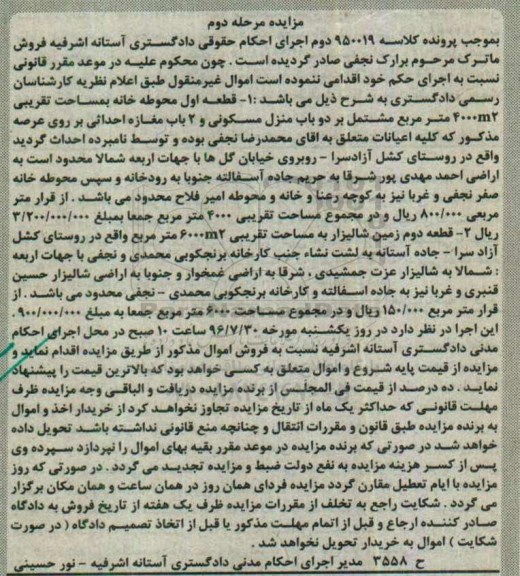 مزایده مرحله دوم
بموجب پرونده کلاسه ۹۵۰۰۱۹ دوم اجرای احکام حقوقی دادگستری آستانه اشرفیه فروش
ماترک مرحوم برارک نجفی صادر گردیده است . چون محکوم علیه در موعد مقرر قانونی
نسبت به اجرای حکم خود اقدامی ننموده است اموال غیرمنقول طبق اعلام نظریه کارشناسان
رسمی دادگستری به شرح ذیل می باشد :۱- قطعه اول محوطه خانه بمساحت تقریبی
۴۰۰۰m۲ متر مربع مشتمل بر دو باب منزل مسکونی و ۲ باب مغازه احداثی بر روی عرصه
مذکور که کلیه اعیانات متعلق به اقای محمدرضا نجفی بوده و توسط نامبرده احداث گردید
واقع در روستای کشل آزادسرا - روبروی خیابان گل ها با جهات اربعه شمالا محدود است به
اراضی احمد مهدی پور شرقا به حریم جاده آسفالته جنوبا به رودخانه و سپس محوطه خانه
صفر نجفی و غربا نیز به کوچه رعنا و خانه و محوطه امیر فلاح محدود می باشد . از قرار متر
مربعی ۸۰۰/۰۰۰ ریال و در مجموع مساحت تقریبی ۴۰۰۰ متر مربع جمعا بمبلغ ۳/۲۰۰/۰۰۰/۰۰۰
ریال ۲- قطعه دوم زمین شالیزار به مساحت تقریبی ۶۰۰۰m۲ متر مربع واقع در روستای کشل
آزاد سرا - جاده آستانه به لشت نشاء جنب کارخانه برنجکوبی محمدی و نجفی با جهات اربعه
: شمالا به شالیزار عزت جمشیدی ، شرقا به اراضی غمخوار و جنوبا به اراضی شالیزار حسین
قنبری و غربا نیز به جاده اسفالته و کارخانه برنجکوبی محمدی - نجفی محدود می باشد . از
قرار متر مربع ۱۵۰/۰۰۰ ریال و در مجموع مساحت ۶۰۰۰ متر مربع جمعا به مبلغ ۹۰۰/۰۰۰/۰۰۰ .
این اجرا در نظر دارد در روز یکشنبه مورخه ۹۶/۷/۳۰ ساعت ۱۰ صبح در محل اجرای احکام
مدنی دادگستری آستانه اشرفیه نسبت به فروش اموال مذکور از طریق مزایده اقدام نماید و
مزایده از قیمت پایه شروع و اموال متعلق به کسی خواهد بود که بالاترین قیمت را پیشنهاد
نماید . ده درصد از قیمت فی المجلس از برنده مزایده دریافت و الباقی وجه مزایده ظرف
مهلت قانونی که حداکثر یک ماه از تاریخ مزایده تجاوز نخواهد کرد از خریدار اخذ و اموال
به برنده مزایده طبق قانون و مقررات انتقال و چنانچه منع قانونی نداشته باشد تحویل داده
خواهد شد در صورتی که برنده مزایده در موعد مقرر بقیه بهای اموال را نپردازد سپرده وی
پس از کسر هزینه مزایده به نفع دولت ضبط و مزایده تجدید می گردد . در صورتی که روز
مزایده با ایام تعطیل مقارن گردد مزایده فردای همان روز در همان ساعت و همان مکان برگزار
می گردد . شکایت راجع به تخلف از مقررات مزایده ظرف یک هفته از تاریخ فروش به دادگاه
صادر کننده ارجاع و قبل از اتمام مهلت مذکور یا قبل از اتخاذ تصمیم دادگاه ( در صورت
شکایت ) اموال به خریدار تحویل نخواهد شد .
ح ۳۵۵۸ مدیر اجرای احکام مدنی دادگستری آستانه اشرفیه - نور حسینی